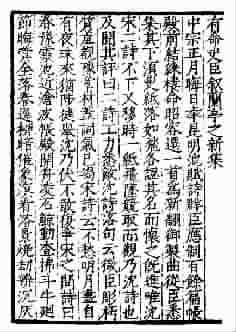 有命史臣叙蘭亭之新集
中宗正月晦日幸昆明池賦詩群臣應制百餘篇帳
殿前結綵樓命昭容選一首為新翻御製曲從臣悉
集其下須臾紙落如飛各認其名而懷之既進唯沈
宋二詩不下又移時一紙飛墜競取而觀乃沈詩也
及聞其評曰二詩工力悉敵沈詩落句云微臣彫朽
質羞覩豫章材蓋詞氣已竭宋詩云不愁明月盡自
有夜珠來猶陟健舉沈乃伏不敢復爭宋之問詩曰
春豫靈池近滄波帳殿開舟凌石鯨動查拂斗牛迴
節晦蓂全落春遲柳暗催象溟看浴景燒劫辨沉灰